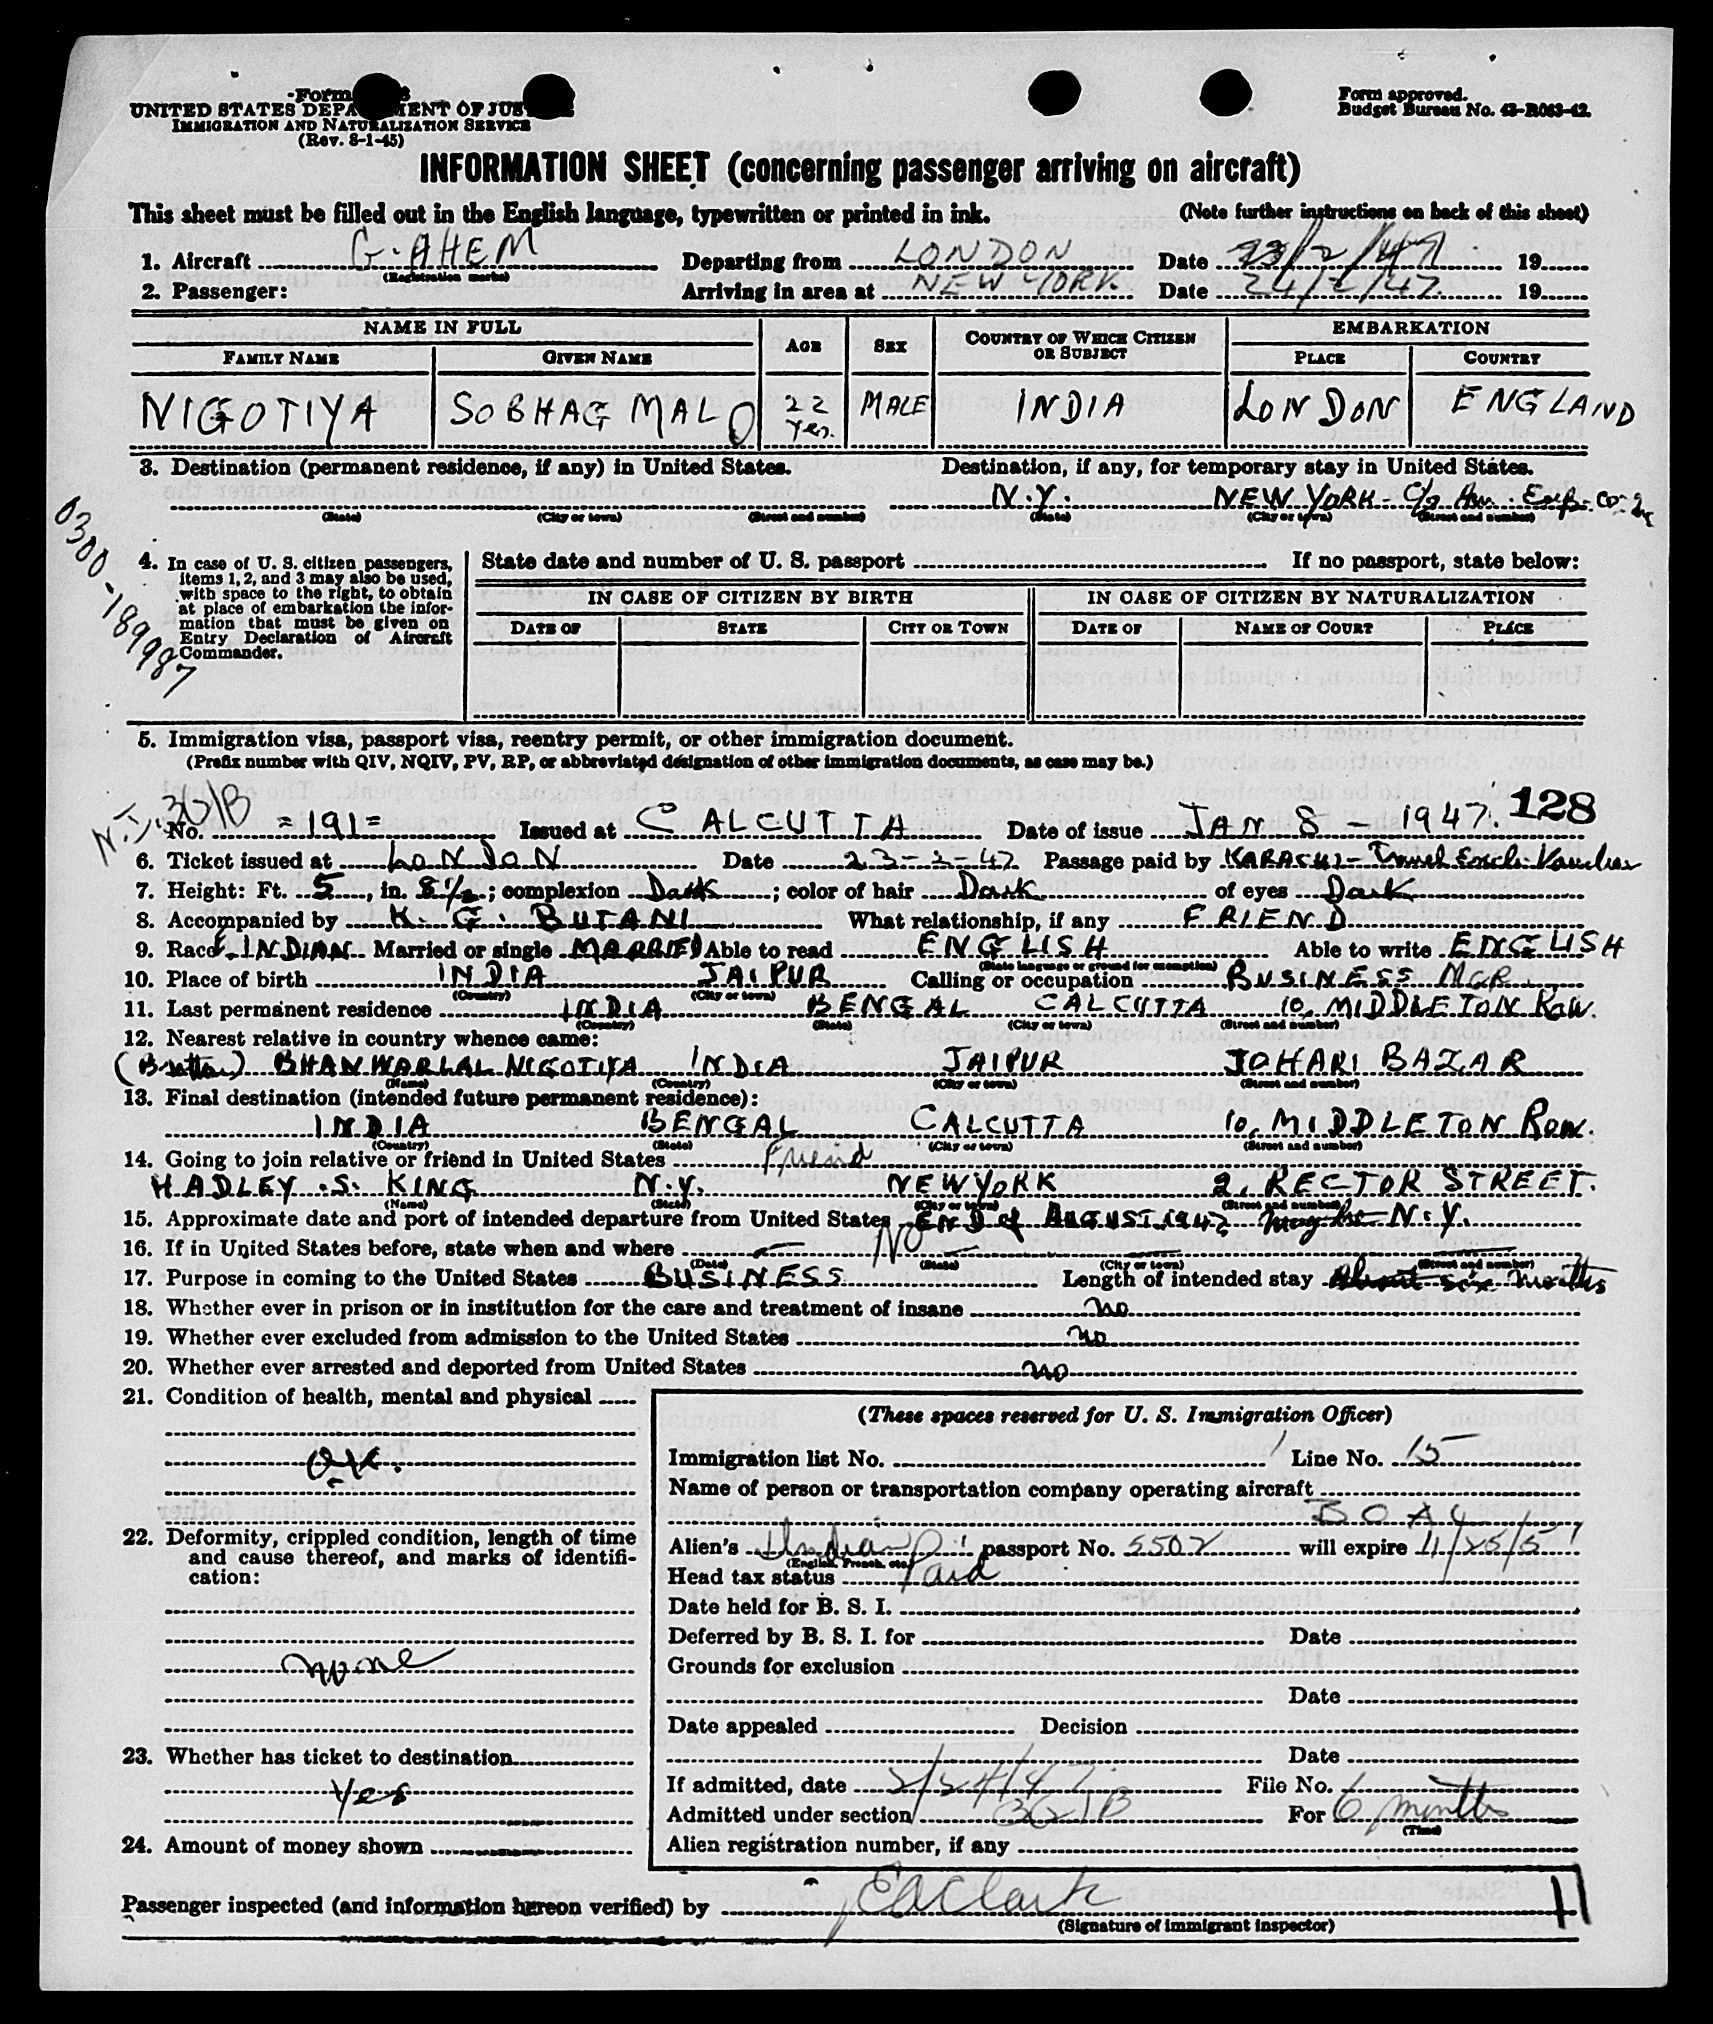 Form
UNITED STATES DEPARTMENT OF JUSTICE
IMMIGRATION AND NATURALIZATION SERVICE
(Rev. 8-1-45)
Form approved.
Budget Bureau No. 43-R063-42.
INFORMATION SHEET (concerning passenger arriving on aircraft)
This sheet must be filled out in the English language, typewritten or printed in ink. (Note further instructions on back of this sheet)
1. Aircraft G-AHEM (Registration marks) Departing from LONDON Date 23/2/47 19
2. Passenger: Arriving in area at NEW YORK Date 24/2/47 19
NAME IN FULL AGE SEX COUNTRY OF WHICH CITIZEN OR SUBJECT EMBARKATION
FAMILY NAME GIVEN NAME PLACE COUNTRY
NIGOTIYA SOBHAG MAL 22 yrs. MALE INDIA LONDON ENGLAND
3. Destination (permanent residence, if any) in United States. Destination, if any, for temporary stay in United States.
N.Y. NEW YORK - C/o Am. Exp. Co.
(State) (City or town) (Street and number) (State) (City or town) (Street and number)
0300-189987
4. In case of U. S. citizen passengers, items 1, 2, and 3 may also be used, with space to the right, to obtain at place of embarkation the information that must be given on Entry Declaration of Aircraft Commander.
State date and number of U. S. passport If no passport, state below:
IN CASE OF CITIZEN BY BIRTH IN CASE OF CITIZEN BY NATURALIZATION
DATE OF STATE CITY OR TOWN DATE OF NAME OF COURT PLACE
5. Immigration visa, passport visa, reentry permit, or other immigration document.
(Prefix number with QIV, NQIV, PV, RP, or abbreviated designation of other immigration documents, as case may be.)
128
No. =191= Issued at CALCUTTA Date of issue JAN 8 - 1947.
6. Ticket issued at LONDON Date 23-2-47 Passage paid by KARACHI - Travel Exch. Voucher
7. Height: Ft. 5, in. 8½; complexion Dark; color of hair Dark of eyes Dark
8. Accompanied by K. G. BUTANI What relationship, if any FRIEND
9. Race INDIAN Married or single MARRIED Able to read ENGLISH Able to write ENGLISH
(State language or ground for exemption)
10. Place of birth INDIA JAIPUR Calling or occupation BUSINESS MGR.
(Country) (City or town)
11. Last permanent residence INDIA BENGAL CALCUTTA 10, MIDDLETON ROW.
(Country) (State) (City or town) (Street and number)
12. Nearest relative in country whence came:
(Brother) BHANWARLAL NIGOTIYA INDIA JAIPUR JOHARI BAZAR
(Name) (Country) (City or town) (Street and number)
13. Final destination (intended future permanent residence):
INDIA BENGAL CALCUTTA 10, MIDDLETON ROW.
(Country) (State) (City or town) (Street and number)
14. Going to join relative or friend in United States Friend
HADLEY .S. KING N.Y. NEW YORK 2, RECTOR STREET.
(Name) (State) (City or town) (Street and number)
15. Approximate date and port of intended departure from United States END of AUGUST 1947 may be N.Y.
16. If in United States before, state when and where No
(Date) (State) (City or town) (Street and number)
17. Purpose in coming to the United States BUSINESS Length of intended stay About six months
18. Whether ever in prison or in institution for the care and treatment of insane no
19. Whether ever excluded from admission to the United States no
20. Whether ever arrested and deported from United States no
21. Condition of health, mental and physical
O.K.
22. Deformity, crippled condition, length of time and cause thereof, and marks of identification:
none
23. Whether has ticket to destination
Yes
24. Amount of money shown
(These spaces reserved for U. S. Immigration Officer)
Immigration list No. Line No. 15
Name of person or transportation company operating aircraft
BOAC
Alien's Indian passport No. 5502 will expire 11/25/51
(English, French, etc.)
Head tax status Paid
Date held for B. S. I.
Deferred by B. S. I. for Date
Grounds for exclusion
Date
Date appealed Decision
Date
If admitted, date 2/24/47. File No.
Admitted under section 3(2)B For 6 months
(Time)
Alien registration number, if any
Passenger inspected (and information hereon verified) by EAClark
(Signature of immigrant inspector)
11